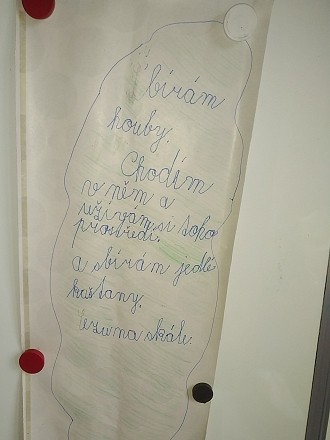 sbírám
houby.
Chodím
v něm a
užívám si toho
prostředí.
a sbírám jedlé
kaštany.
lezu na skále.